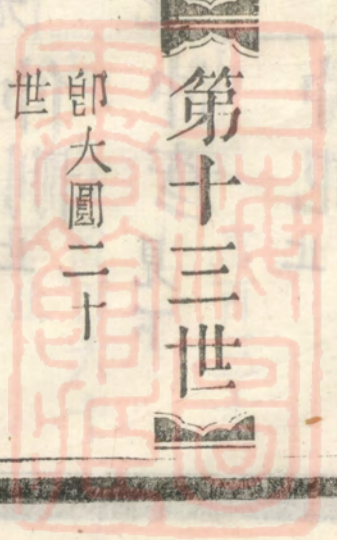 第十三世
卽大圓二十
世